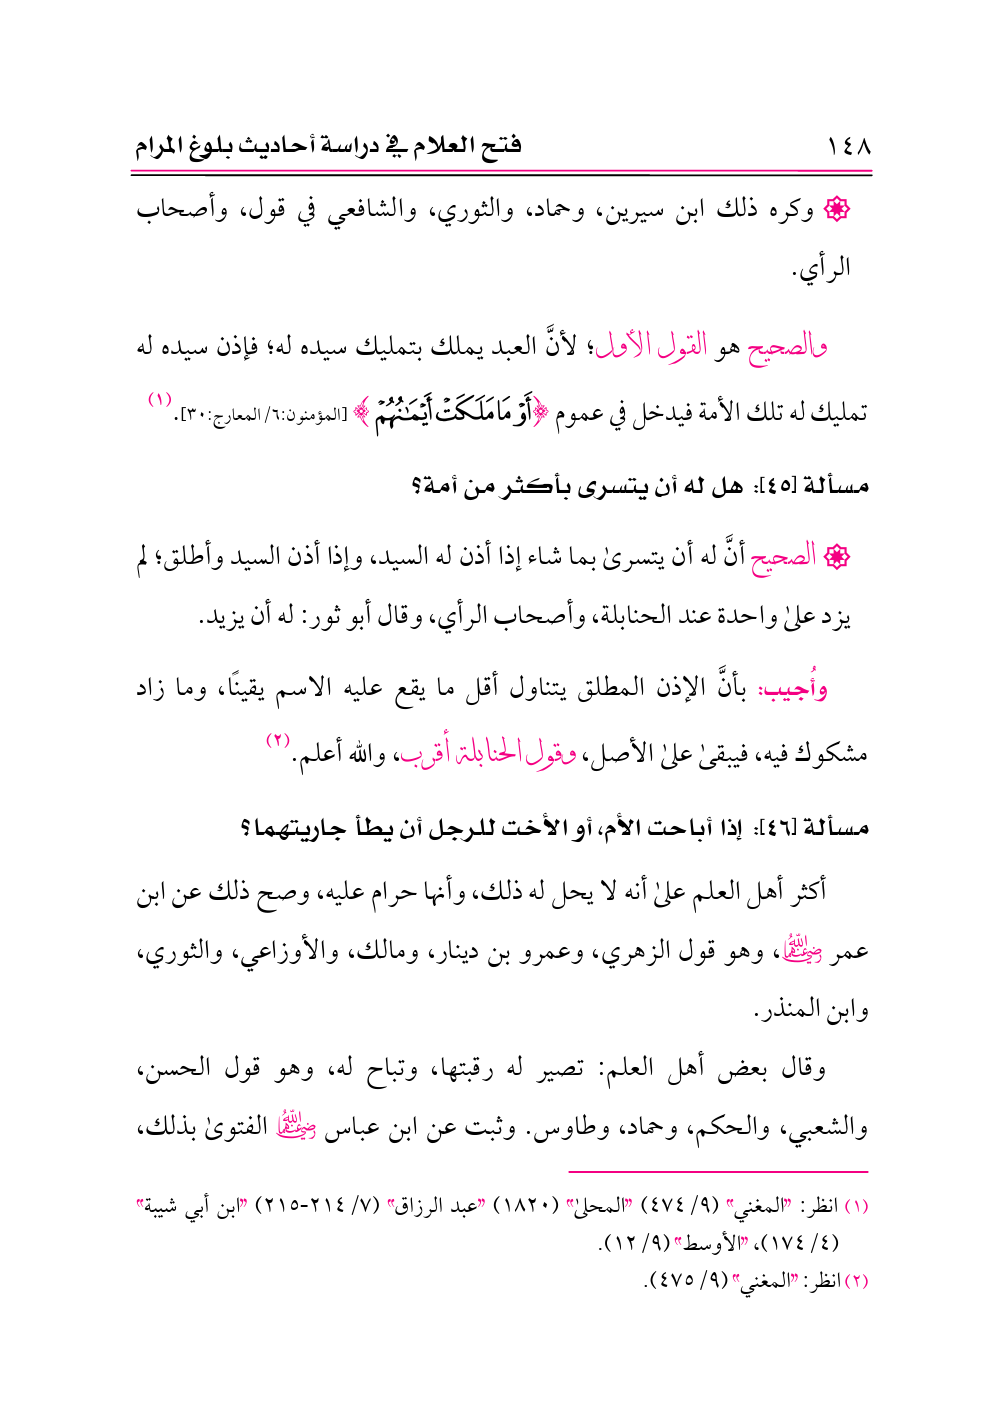 ١٤٨ فتح العلام في دراسة أحاديث بلوغ المرام
وكره ذلك ابن سيرين، وحماد، والثوري، والشافعي في قول، وأصحاب
الرأي.
والصحيح هو القول الأول؛ لأنَّ العبد يملك بتمليك سيده له؛ فإذن سيده له
تمليك له تلك الأمة فيدخل في عموم ﴿أَوْ مَا مَلَكَتْ أَيْمَٰنُهُمْ﴾ [المؤمنون:٦/ المعارج:٣٠].(١)
مسألة [٤٥]: هل له أن يتسرى بأكثر من أمة؟
الصحيح أنَّ له أن يتسرىٰ بما شاء إذا أذن له السيد، وإذا أذن السيد وأطلق؛ لم
يزد علىٰ واحدة عند الحنابلة، وأصحاب الرأي، وقال أبو ثور: له أن يزيد.
وأُجيب: بأنَّ الإذن المطلق يتناول أقل ما يقع عليه الاسم يقينًا، وما زاد
مشكوك فيه، فيبقىٰ علىٰ الأصل، وقول الحنابلة أقرب، والله أعلم.(٢)
مسألة [٤٦]: إذا أباحت الأم، أو الأخت للرجل أن يطأ جاريتهما؟
أكثر أهل العلم علىٰ أنه لا يحل له ذلك، وأنها حرام عليه، وصح ذلك عن ابن
عمر رضي الله عنهما، وهو قول الزهري، وعمرو بن دينار، ومالك، والأوزاعي، والثوري،
وابن المنذر.
وقال بعض أهل العلم: تصير له رقبتها، وتباح له، وهو قول الحسن،
والشعبي، والحكم، وحماد، وطاوس. وثبت عن ابن عباس رضي الله عنهما الفتوىٰ بذلك،
(١) انظر: "المغني" (٩/ ٤٧٤) "المحلىٰ" (١٨٢٠) "عبد الرزاق" (٧/ ٢١٤-٢١٥) "ابن أبي شيبة"
(٤/ ١٧٤)، "الأوسط" (٩/ ١٢).
(٢) انظر: "المغني" (٩/ ٤٧٥).